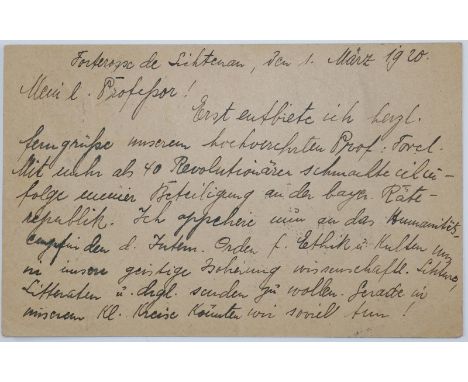 Forteresse de Lichtenau, den 1. März 1920.
Mein l. Professor!
Erst entbiete ich herzl.
ferngrüße unserem hochverehrten Prof. Forel.
Mit mehr als 40 Revolutionären schmachte ich in-
folge meiner Beteiligung an der bayer. Räte-
republik. Ich appeliere nun an das Humanitäts
empfinden d. Intern. Orden f. Ethik u. Kultur uns
in unsere geistige Isolierung wissenschaftl. Lektüre,
Litteratur u. drgl. senden zu wollen. Gerade in
unserem kl. Kreise könnten wir soviel tun!